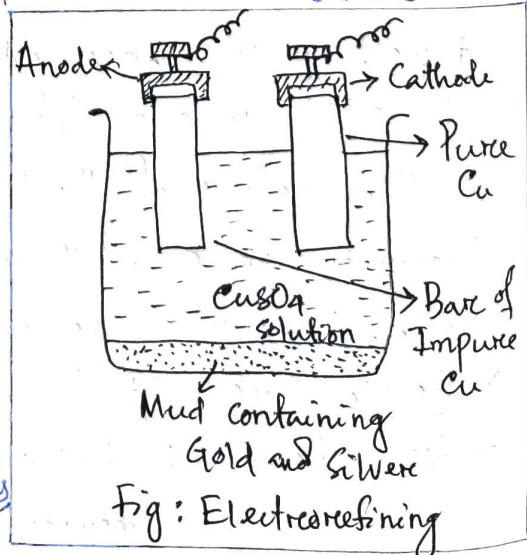 Anode
Cathode
Pure
Cu
CuSO4
solution
Bar of
Impure
Cu
Mud containing
Gold and Silvere
Fig : Electrorefining